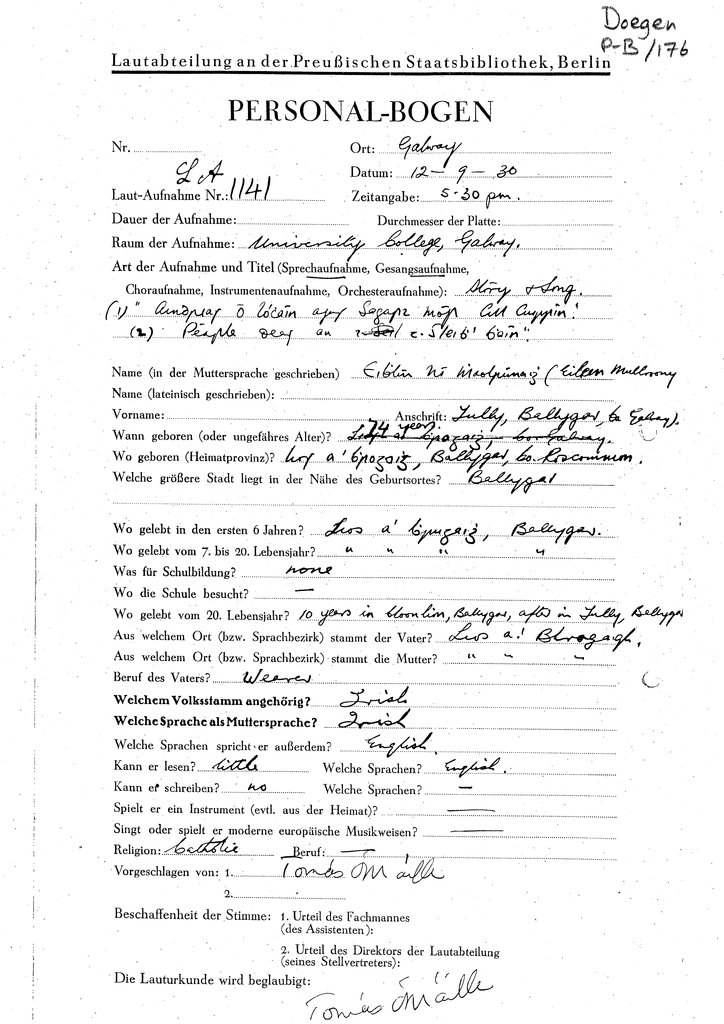 Doegen
P-B/176
Lautabteilung an der Preußischen Staatsbibliothek, Berlin
PERSONAL-BOGEN
Nr. Ort: Galway
Datum: 12 - 9 - 30
Laut-Aufnahme Nr.: LA 1141 Zeitangabe: 5-30 pm.
Dauer der Aufnahme: Durchmesser der Platte:
Raum der Aufnahme: University College, Galway.
Art der Aufnahme und Titel (Sprechaufnahme, Gesangsaufnahme,
Choraufnahme, Instrumentenaufnahme, Orchesteraufnahme): Story & Song.
(1) "
(2) an
Name (in der Muttersprache geschrieben) Eiblín Ní (Eileen Mullroony
Name (lateinisch geschrieben):
Vorname: Anschrift: Tully, Ballygar, Co Galway.
Wann geboren (oder ungefähres Alter)? 74 years.
Wo geboren (Heimatprovinz)? Ballygar, Co. Roscommon.
Welche größere Stadt liegt in der Nähe des Geburtsortes? Ballygar
Wo gelebt in den ersten 6 Jahren? Lios a' Ballygar.
Wo gelebt vom 7. bis 20. Lebensjahr? " " " "
Was für Schulbildung? none
Wo die Schule besucht? —
Wo gelebt vom 20. Lebensjahr? 10 years in Ballygar, after in Tully, Ballygar
Aus welchem Ort (bzw. Sprachbezirk) stammt der Vater? Lios a'
Aus welchem Ort (bzw. Sprachbezirk) stammt die Mutter? " " "
Beruf des Vaters? Weaver
Welchem Volksstamm angehörig? Irish
Welche Sprache als Muttersprache? Irish
Welche Sprachen spricht er außerdem? English.
Kann er lesen? little Welche Sprachen? English.
Kann er schreiben? no Welche Sprachen? —
Spielt er ein Instrument (evtl. aus der Heimat)? —
Singt oder spielt er moderne europäische Musikweisen? —
Religion: Catholic Beruf: —
Vorgeschlagen von: 1. Tomás Ó Máille
2.
Beschaffenheit der Stimme: 1. Urteil des Fachmannes
(des Assistenten):
2. Urteil des Direktors der Lautabteilung
(seines Stellvertreters):
Die Lauturkunde wird beglaubigt:
Tomás Ó Máille